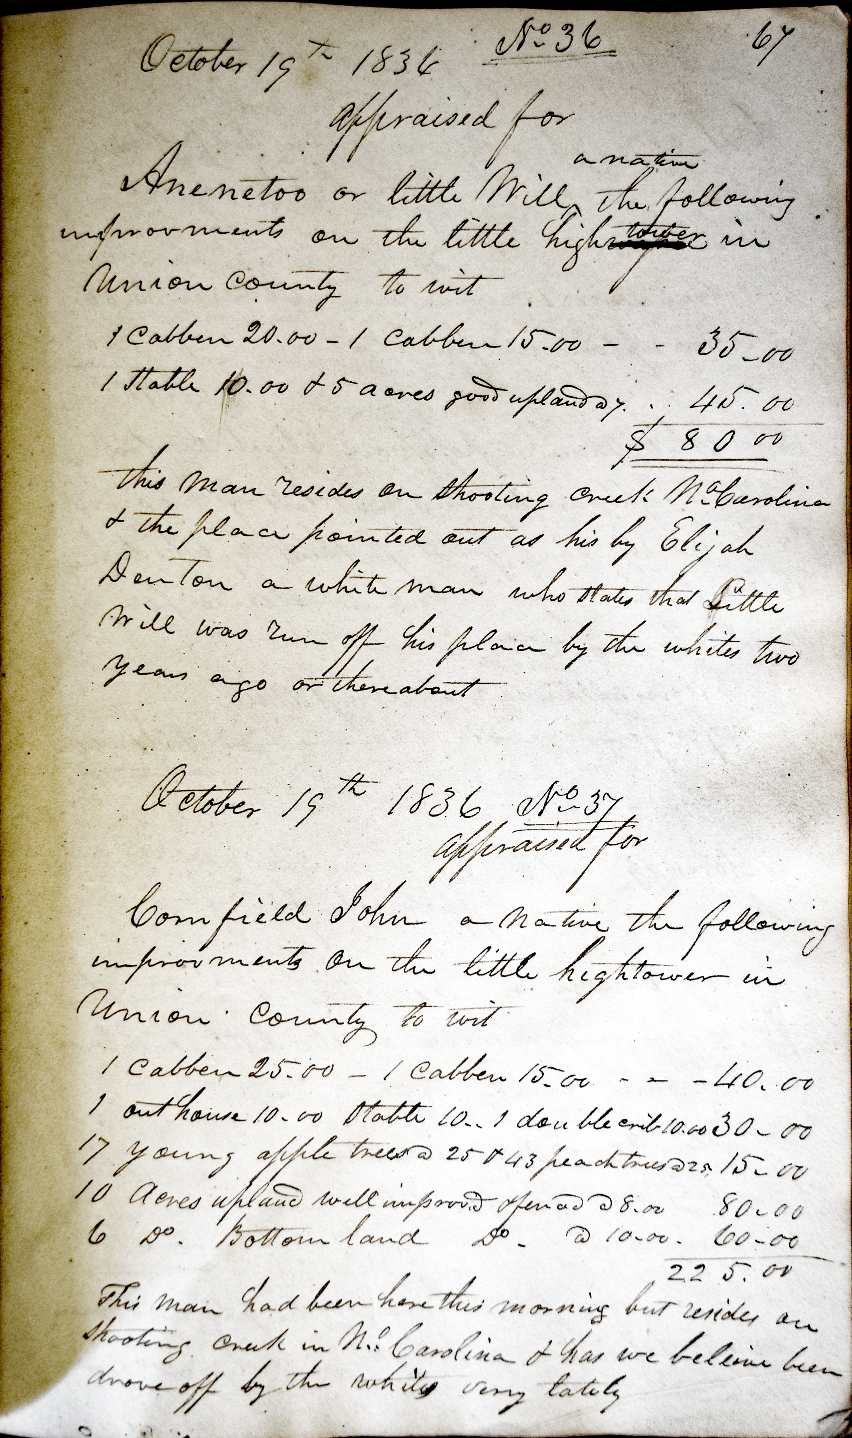 October 19th 1836 No 36 67
appraised for
a native
Anenetoo or little Will, the following
improvments on the little hightower in
Union county to wit
1 Cabben 20.00 - 1 Cabben 15.00 - - 35.00
1 Stable 10.00 & 5 acres good upland @ 7. . . 45.00
$ 80 00
this man resides on Shooting creek No Carolina
& the place pointed out as his by Elijah
Denton a white man who states that Little
Will was run off his place by the whites two
years ago or thereabout
October 19th 1836 No 37
appraised for
Cornfield John a native the following
improvments on the little hightower in
Union County to wit
1 Cabben 25.00 - 1 Cabben 15.00 - - - 40.00
1 out house 10.00 Stable 10.. 1 double crib 10.00 30-00
17 young apple trees @ 25 & 43 peach trees @ 25 15-00
10 Acres upland well improvd open ad @ 8.00 80.00
6 Do. Bottom land Do - @ 10.00. 60-00
225.00
This man had been here this morning but resides on
Shooting creek in No. Carolina & has we beleive been
drove off by the whites very lately